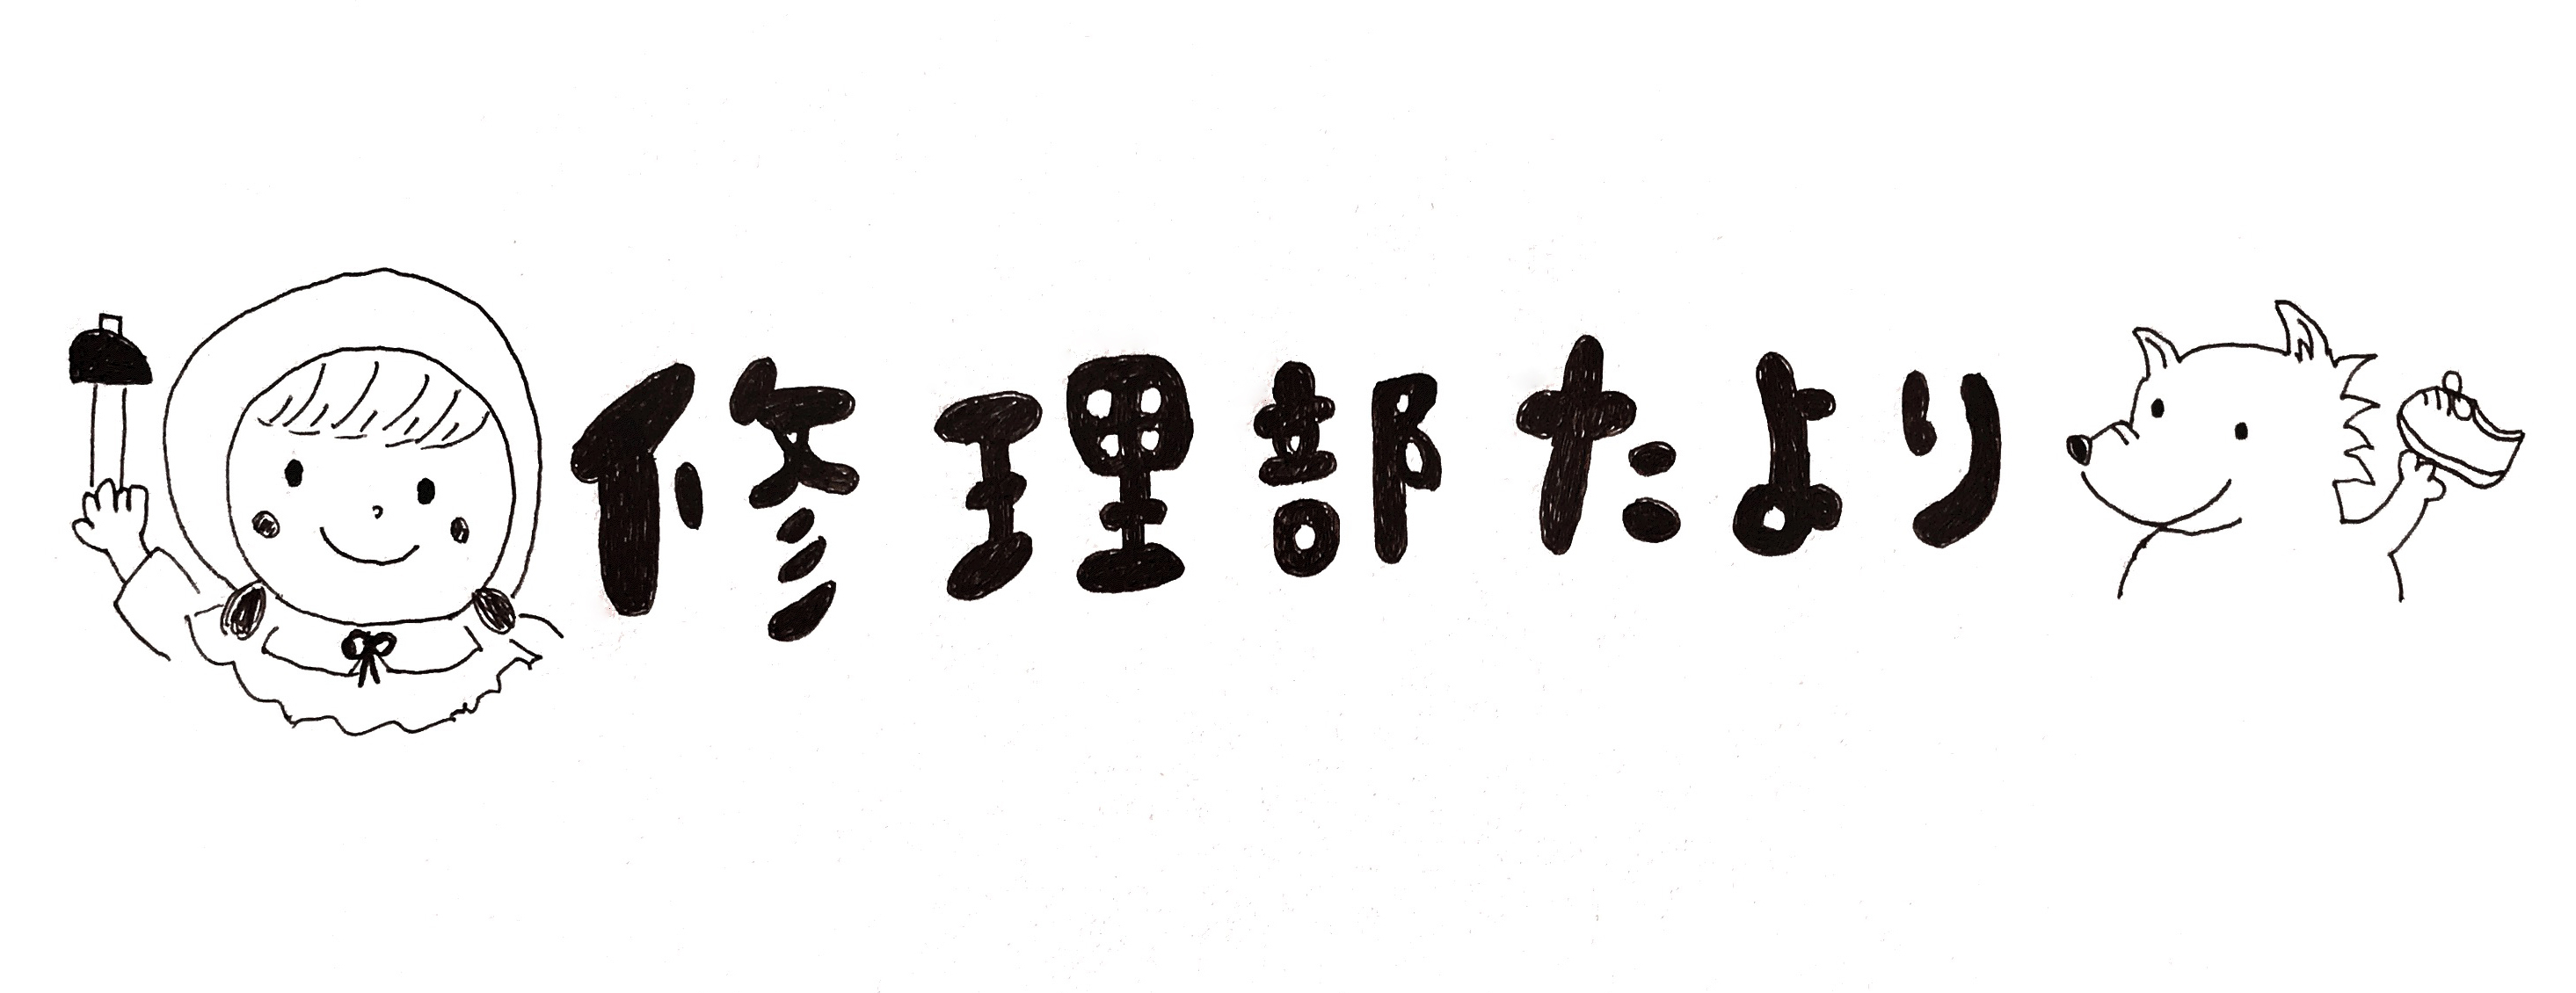 修理部たより